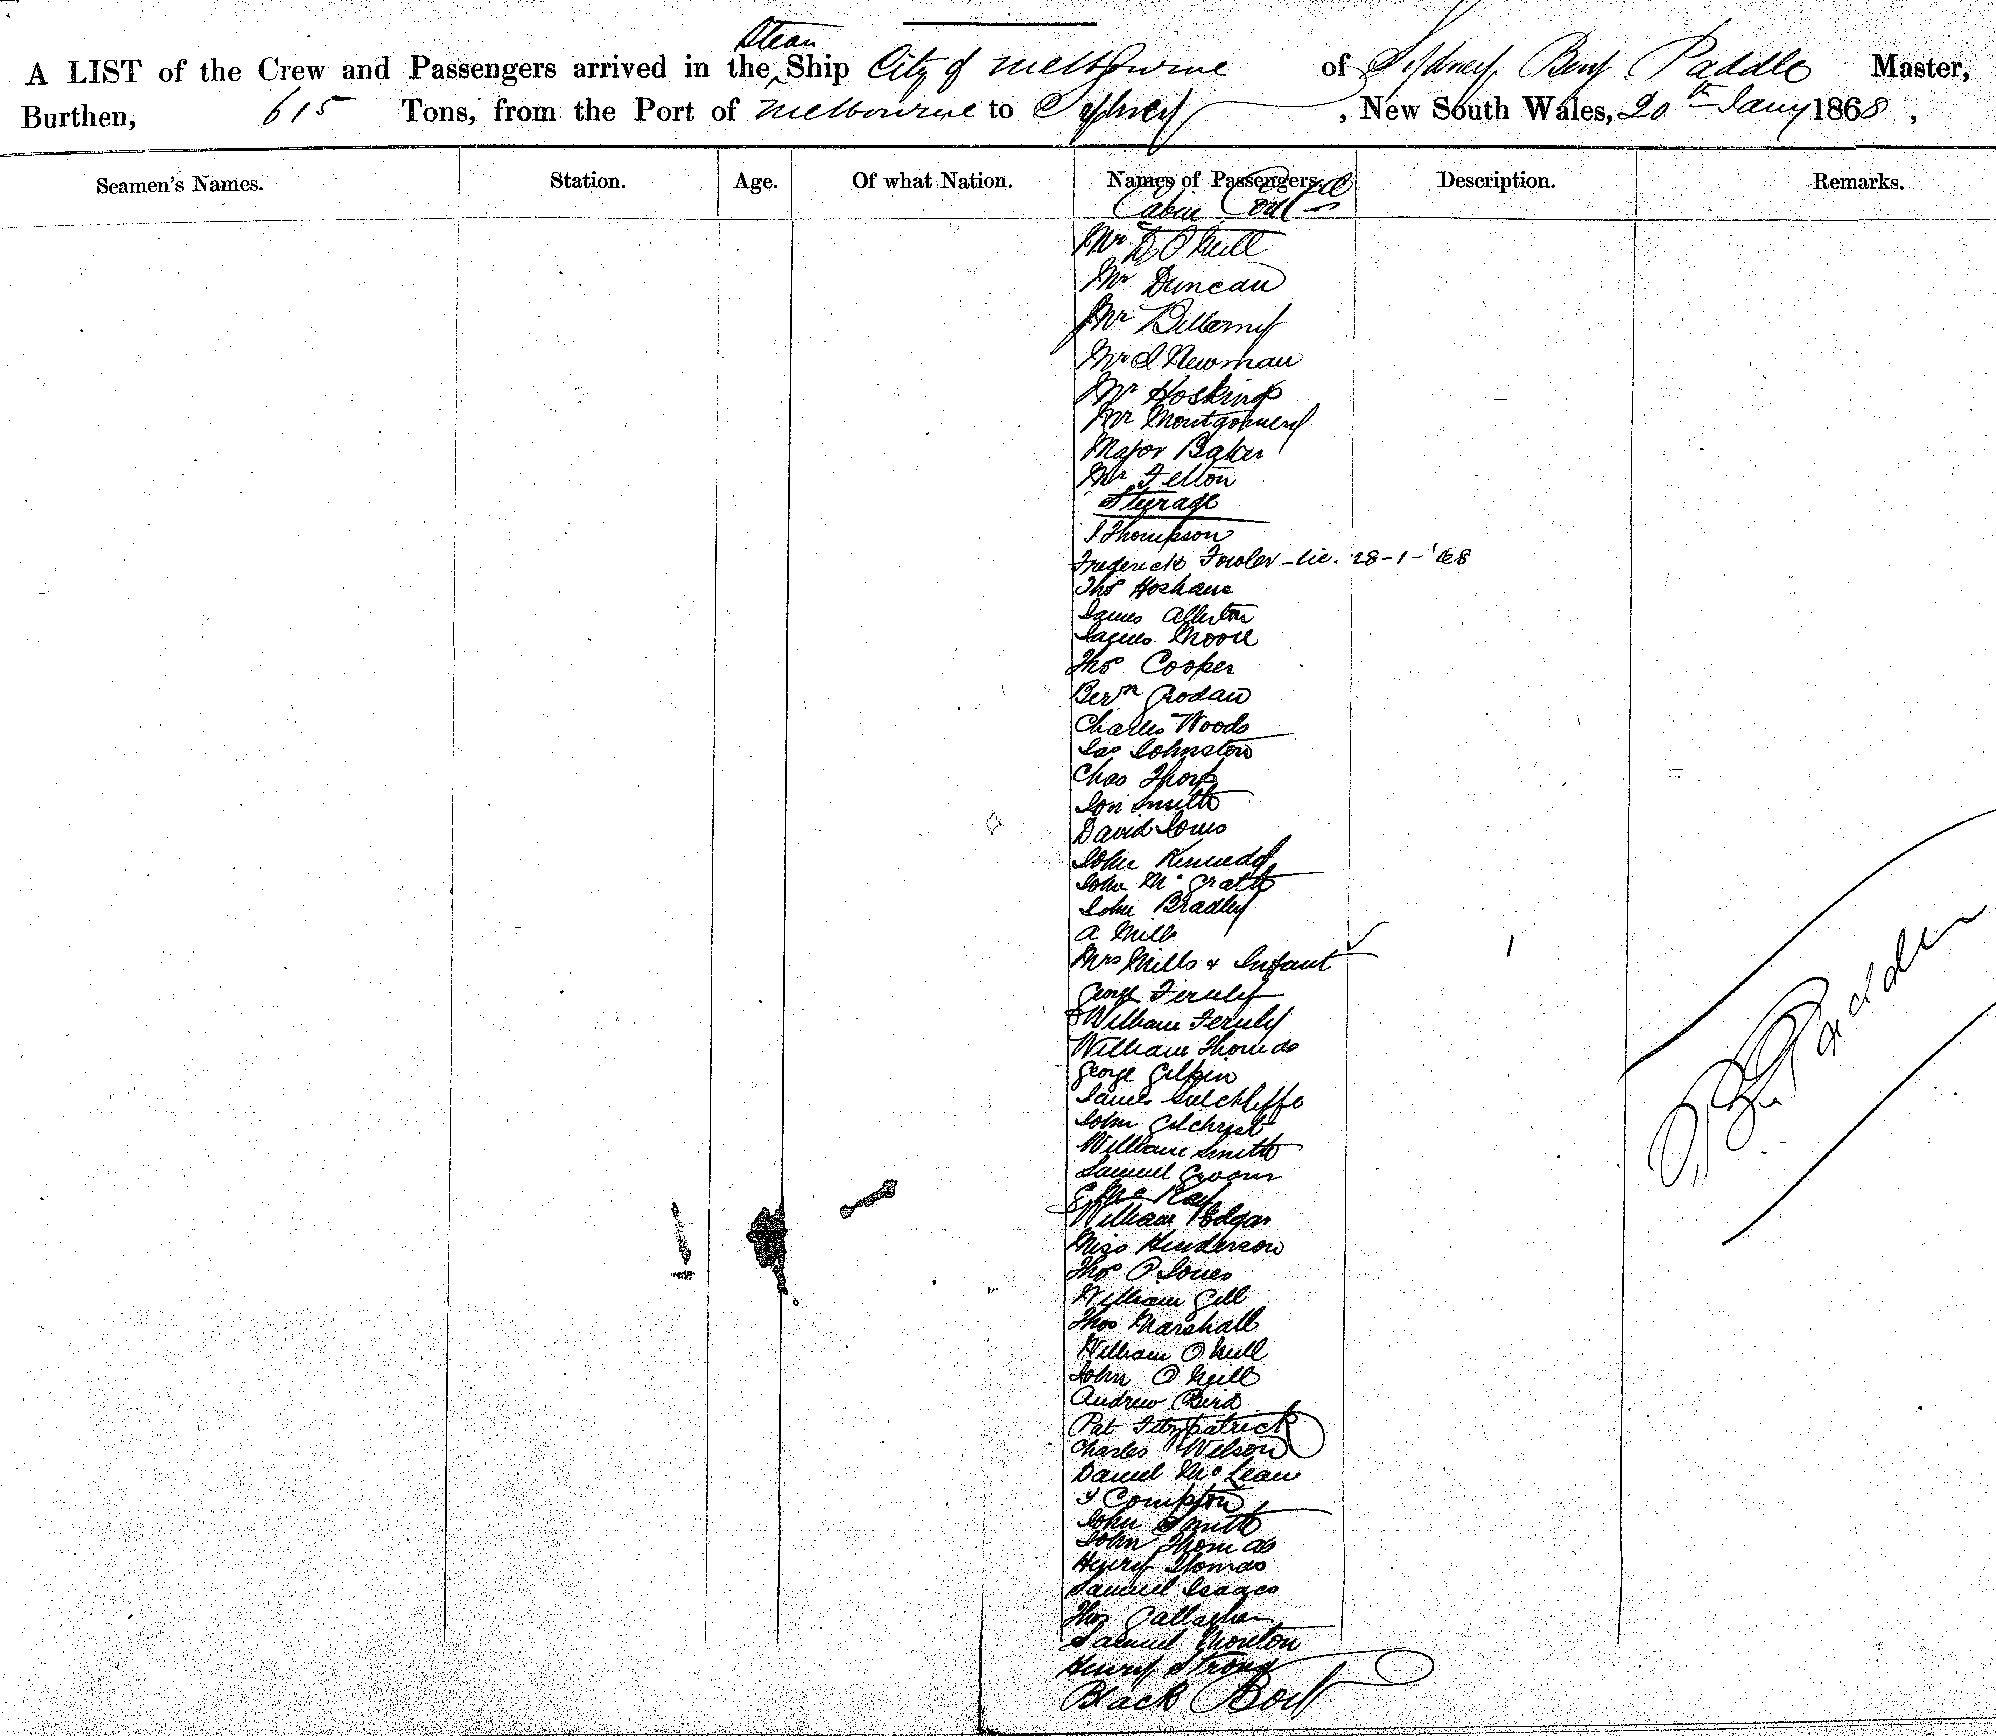 Steam
A LIST of the Crew and Passengers arrived in the Ship City of Melbourne of Sydney, Master,
Burthen, 615 Tons, from the Port of Melbourne to Sydney, New South Wales, 20th Jany 1868,
Seamen's Names. Station. Age. Of what Nation. Names of Passengers. Description. Remarks.
Cabin
Mr D O'Neill
Mr Duncan
Mr
Mr J Newman
Mr Hosking
Mr Montgomery
Major Baker
Mr Felton
Sturage
J Thompson
Frederick Fowler - lic. 28-1-'68
Thos
James Allerton
James Moore
Thos Cooper
Bern
Charles Woods
Jas Johnston
Chas Thorp
Jon Smith
David Jones
John Kennedy
John McGrath
John Bradley
A Mills
Mrs Mills & Infant
George
William
William Thomas
George Gilpin
James Sutcliffe
John Gilchrist
William Smith
Samuel Groom
William Edgar
Miss Henderson
Thos P Jones
William Gill
Thos Marshall
William O'Neill
John O'Neill
Andrew Bird
Pat Fitzpatrick
Charles Wilson
Daniel McLean
J Compton
John Smith
John Thomas
Henry Thomas
Samuel Isaacs
Thos Gallaghan
Samuel Moulton
Henry Strong
Black Boy